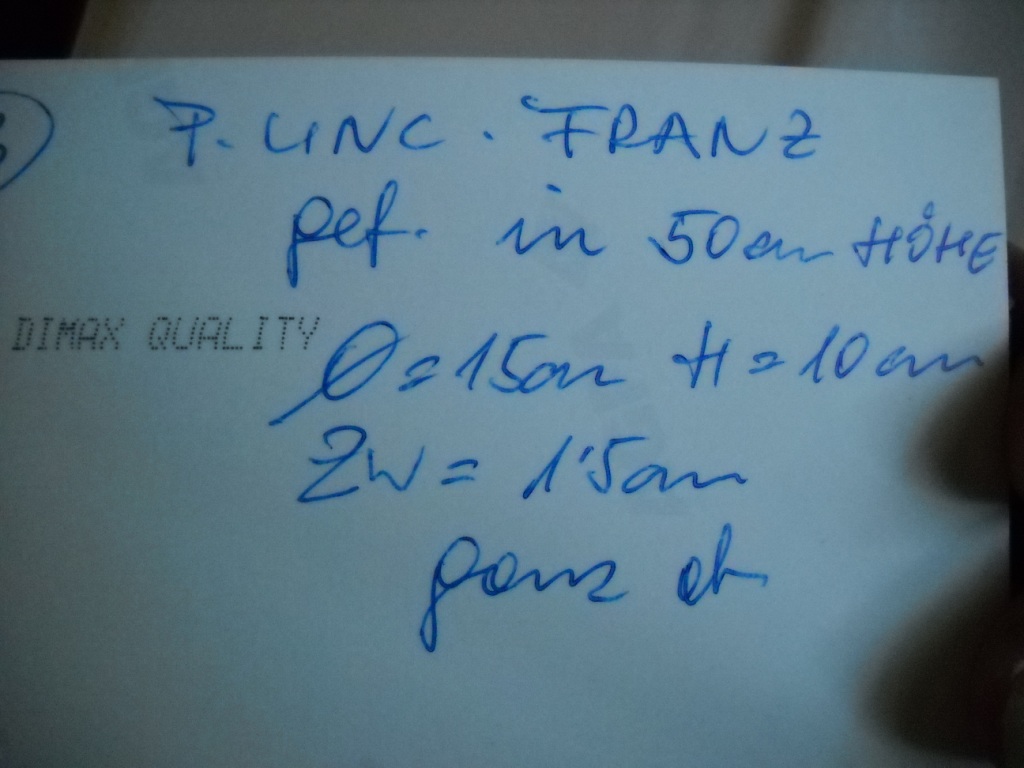 P. LINC. FRANZ
gef. in 50cm HÖHE
DIMAX QUALITY
Ø = 15cm H = 10cm
ZW = 1'5cm
ganz